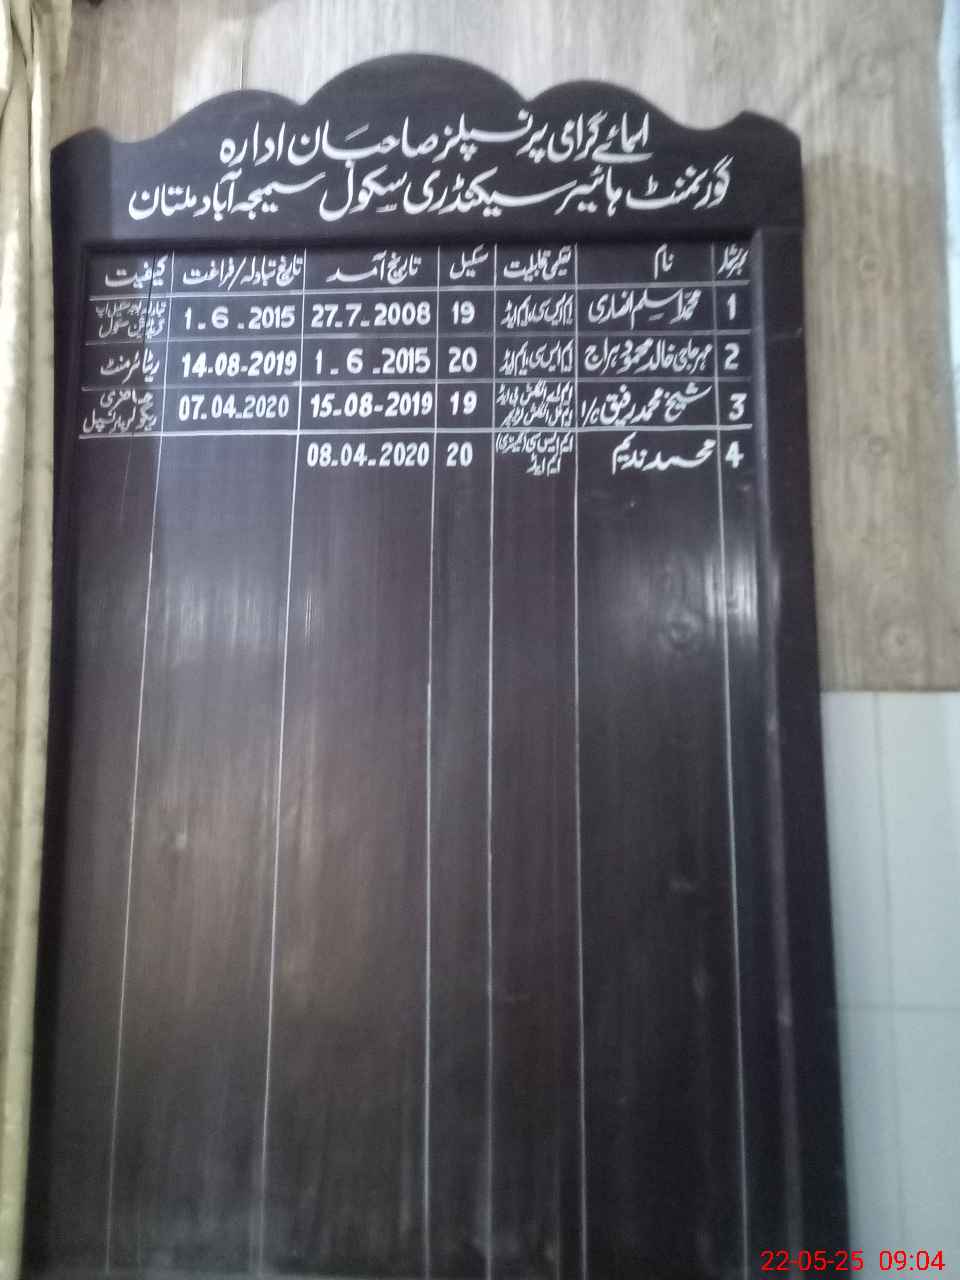 اسمائے گرامی پرنسپلز صاحبان ادارہ
گورنمنٹ ہائیر سیکنڈری سکول سمیجہ آباد ملتان
نمبر شمار نام تعلیمی قابلیت سکیل تاریخ آمد تاریخ تبادلہ/فراغت کیفیت
1 محمد اسلم انصاری ایم ایس سی، ایم ایڈ 19 27.7.2008 1.6.2015 تبادلہ سکول
2 مہر حاجی خالد محمود دہراج ایم ایس سی، ایم ایڈ 20 1.6.2015 14.08-2019 ریٹائرمنٹ
3 شیخ محمد رفیق ہرا 19 15-08-2019 07.04.2020 عارضی ریگولر پرنسپل
4 محمد ندیم ایم ایس سی (کیمسٹری) ایم ایڈ 20 08.04-2020
22-05-25 09:04